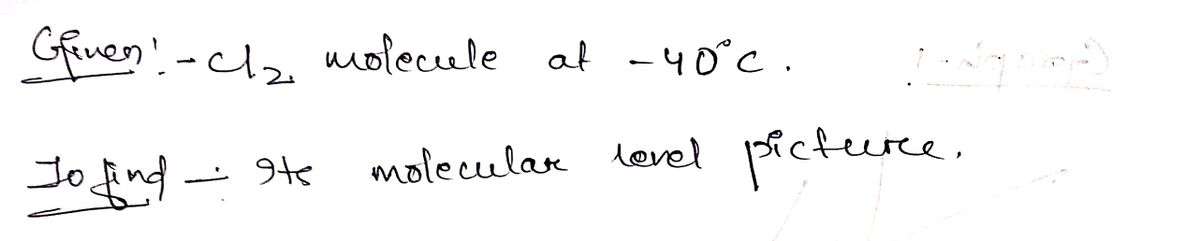 Given:- Cl2 molecule at -40°C.
To find - Its molecular level picture.